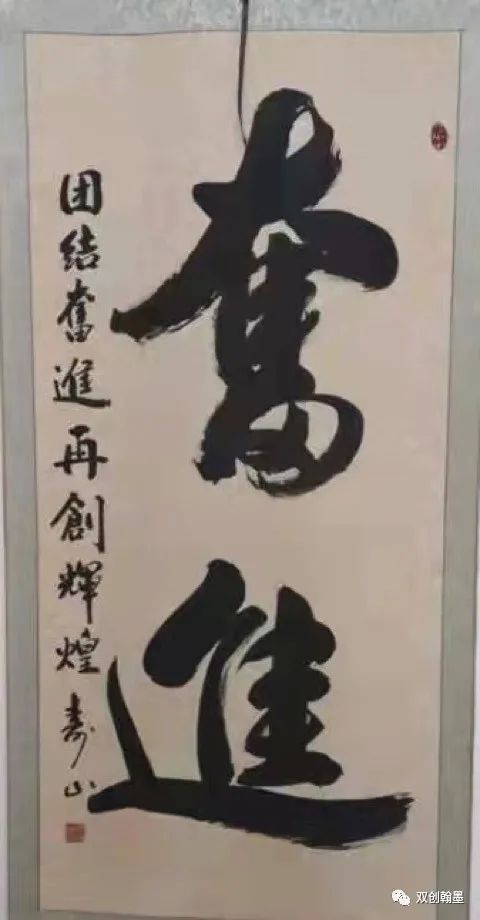 奮進
团结奮進再創輝煌 寿山
双创翰墨